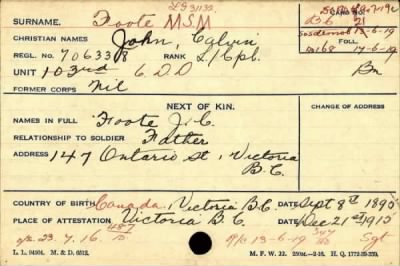 LG 31132
SURNAME. Foote MSM CARD NO.
CHRISTIAN NAMES John, Calvin 21
REGL. NO. 706330 RANK L/Cpl. FOLL.
UNIT 103rd 17-6-19
FORMER CORPS Nil Bn
NEXT OF KIN. CHANGE OF ADDRESS
NAMES IN FULL Foote J. C.
RELATIONSHIP TO SOLDIER Father
ADDRESS 147 Ontario St, Victoria
B.C.
COUNTRY OF BIRTH Canada, Victoria B.C. DATE Sept 8th 1895
PLACE OF ATTESTATION Victoria B.C. DATE Dec 21st 1915
23.7.16. 13-6-19 Sgt
L. L. 94904. M. & D. 6512. M. F. W. 22. H. Q. 1772-39-339.